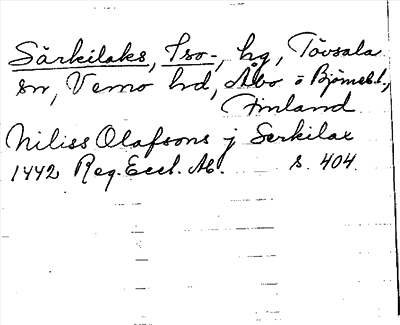 Särkilaks, Iso-, hg, Tövsala
sn, Vemo hrd, Åbo o Björneb.l.,
Finland
Niliss Olafsons j Serkilax
1442 Reg. Eccl. Ab. s. 404.